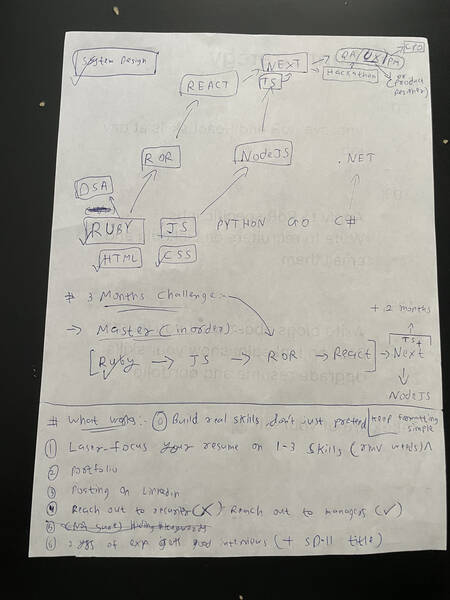 System Design
CTO
NEXT
QA/UX/PM
TS
Hackathon
or (product
REACT
ROR
NodeJS
.NET
DSA
RUBY
JS
PYTHON
GO
C#
HTML
CSS
# 3 Months Challenge
+ 2 months
→ Master (inorder)
TS+
[Ruby → JS → ROR → React] → Next
NodeJS
# What works :- ⓪ Build real skills, don't just pretend
keep formatting
simple
① Laser-focus your resume on 1-3 skills (rmv weeds)
② Portfolio
③ Posting on Linkedin
④ Reach out to recruiter (X) Reach out to managers (✓)
⑤ (Not sure)
⑥ 2 yrs of exp gets good interviews (+ SD-II title)